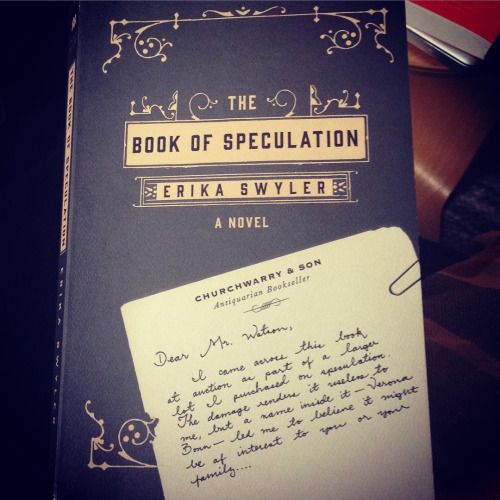 THE
BOOK OF SPECULATION
ERIKA SWYLER
A NOVEL
CHURCHWARRY & SON
Antiquarian Bookseller
Dear Mr. Watson,
I came across this book
at auction as part of a larger
lot I purchased on speculation.
The damage renders it useless to
me, but a name inside it—Verona
Bonn—led me to believe it might
be of interest to you or your
family....
THE BOOK OF SPECULATION
ERIKA SWYLER